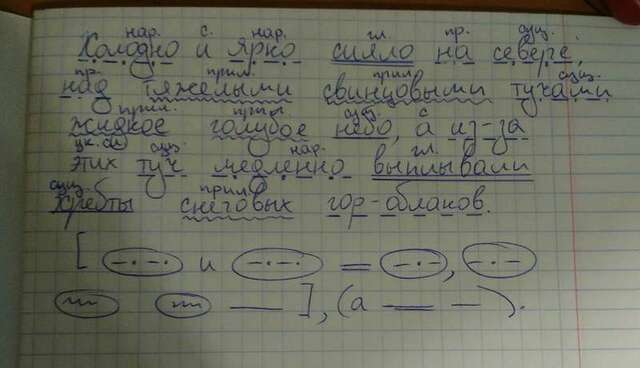 нар. с. нар. гл. пр. сущ.
Холодно и ярко сияло на севере,
пр. прил. прил. сущ.
над тяжелыми свинцовыми тучами
прил. прил. сущ. с
жидкое голубое небо, а из-за
сущ. нар. гл.
этих туч медленно выплывали
сущ. прил.
хребты снеговых гор-облаков.
[ и = , ], (а ).